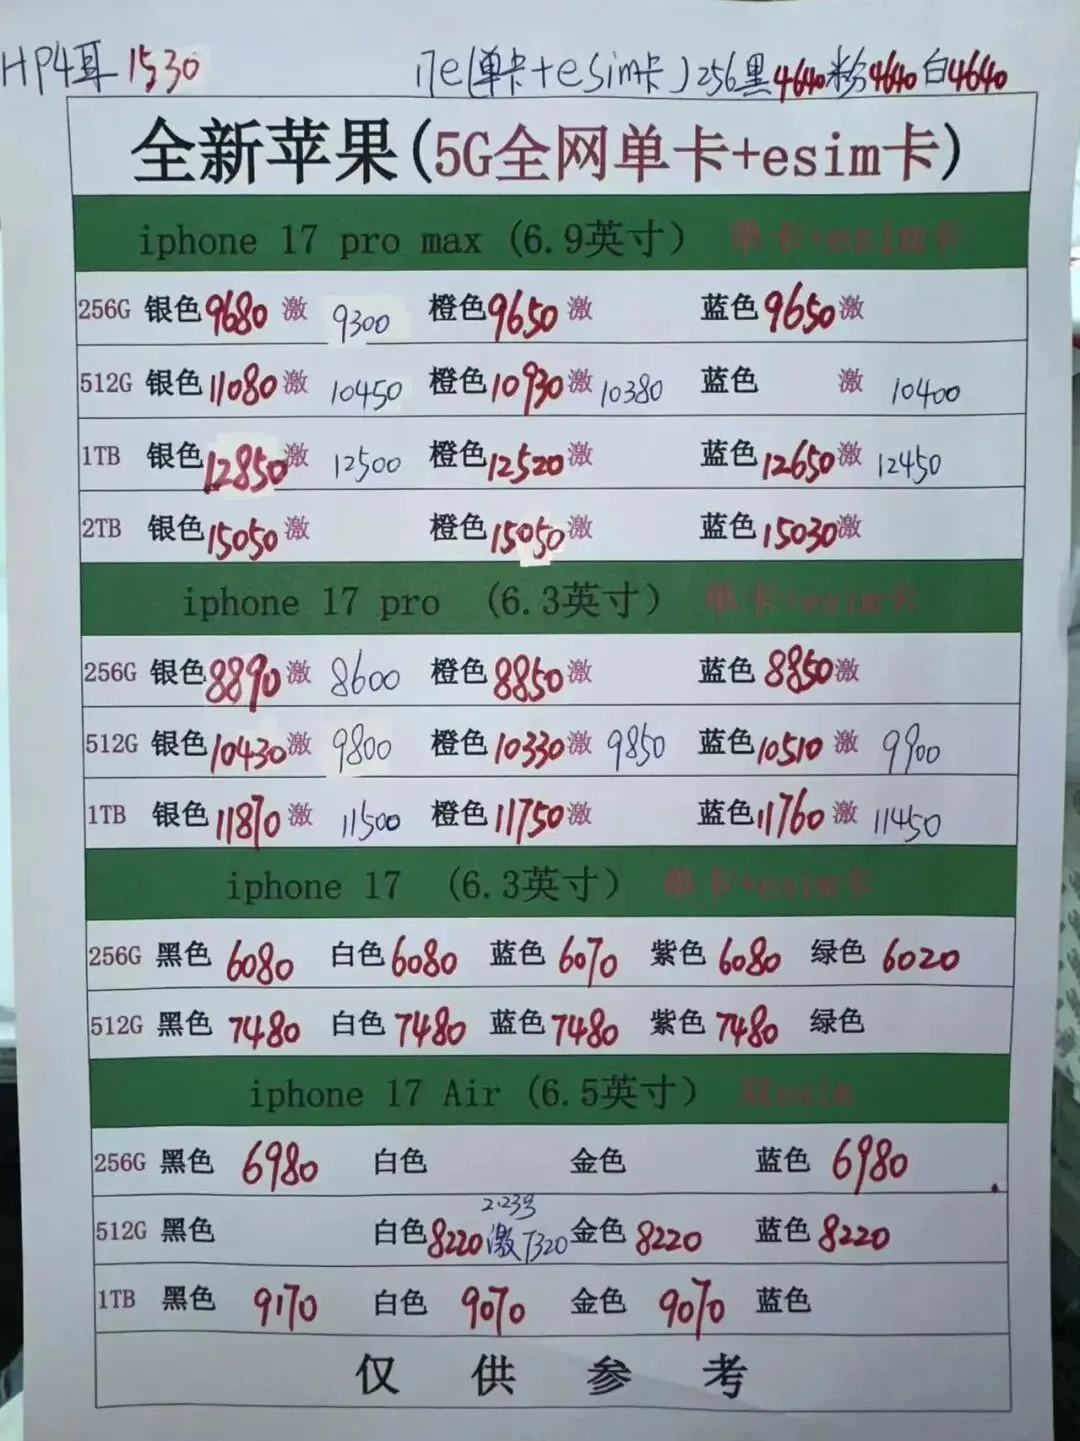 HP4耳 1530 17e(单卡+esim卡)256黑4640粉4640白4640
全新苹果(5G全网单卡+esim卡)
iphone 17 pro max (6.9英寸) 单卡+esim卡
256G 银色9680 激 9300 橙色9650 激 蓝色9650 激
512G 银色11080 激 10450 橙色10930 激 10380 蓝色 激 10400
1TB 银色12850 激 12500 橙色12520 激 蓝色12650 激 12450
2TB 银色15050 激 橙色15050 激 蓝色15030 激
iphone 17 pro (6.3英寸) 单卡+esim卡
256G 银色8890 激 8600 橙色8850 激 蓝色8850 激
512G 银色10430 激 9800 橙色10330 激 9850 蓝色10510 激 9900
1TB 银色11870 激 11500 橙色11750 激 蓝色11760 激 11450
iphone 17 (6.3英寸) 单卡+esim卡
256G 黑色 6080 白色 6080 蓝色 6070 紫色 6080 绿色 6020
512G 黑色 7480 白色 7480 蓝色 7480 紫色 7480 绿色
iphone 17 Air (6.5英寸) 双esim
256G 黑色 6980 白色 金色 蓝色 6980
2.23号
512G 黑色 白色8220 激7320 金色 8220 蓝色 8220
1TB 黑色 9170 白色 9070 金色 9070 蓝色
仅供参考